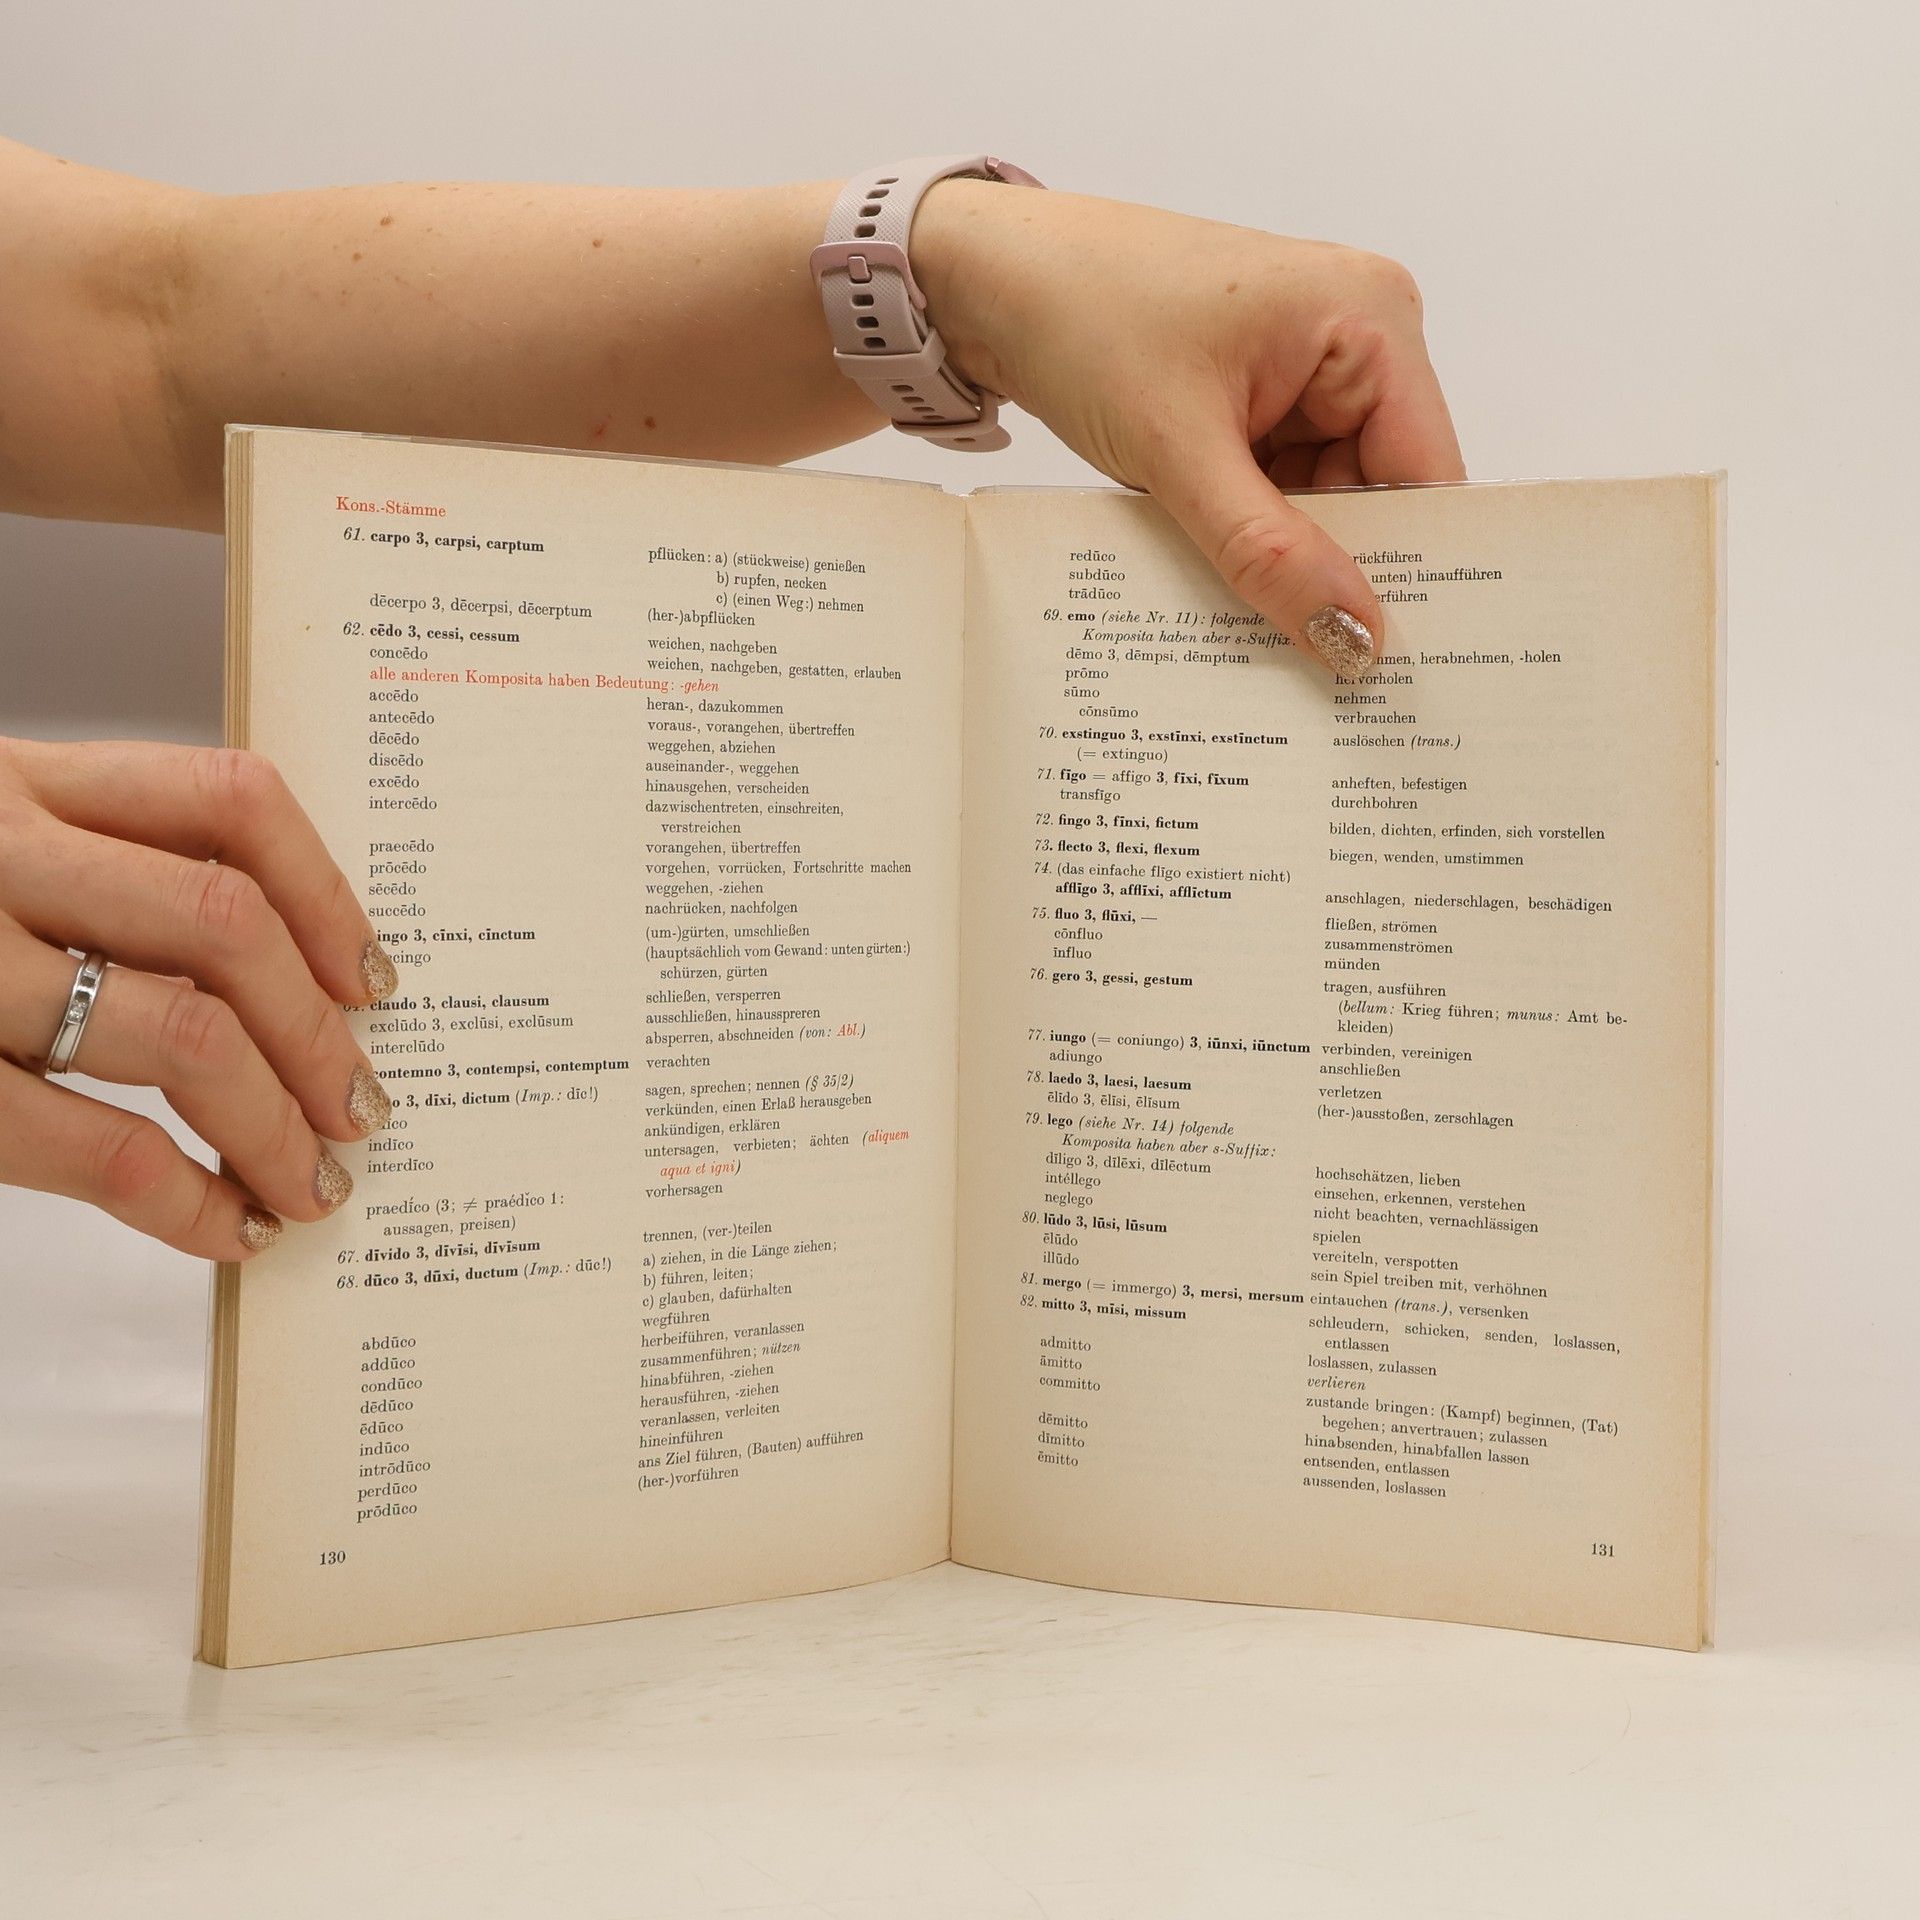 Kons.-Stämme
61. carpo 3, carpsi, carptum
pflücken: a) (stückweise) genießen
b) rupfen, necken
c) (einen Weg:) nehmen
dēcerpo 3, dēcerpsi, dēcerptum (her-)abpflücken
62. cēdo 3, cessi, cessum weichen, nachgeben
concēdo weichen, nachgeben, gestatten, erlauben
alle anderen Komposita haben Bedeutung: -gehen
accēdo heran-, dazukommen
antecēdo voraus-, vorangehen, übertreffen
dēcēdo weggehen, abziehen
discēdo auseinander-, weggehen
excēdo hinausgehen, verscheiden
intercēdo dazwischentreten, einschreiten,
verstreichen
praecēdo vorangehen, übertreffen
prōcēdo vorgehen, vorrücken, Fortschritte machen
sēcēdo weggehen, -ziehen
succēdo nachrücken, nachfolgen
3, cīnxi, cīnctum (um-)gürten, umschließen
(hauptsächlich vom Gewand: unten gürten:)
schürzen, gürten
claudo 3, clausi, clausum schließen, versperren
exclūdo 3, exclūsi, exclūsum ausschließen, hinaussperren
interclūdo absperren, abschneiden (von: Abl.)
contemno 3, contempsi, contemptum verachten
3, dīxi, dictum (Imp.: dīc!) sagen, sprechen; nennen (§ 35/2)
verkünden, einen Erlaß herausgeben
indīco ankündigen, erklären
interdīco untersagen, verbieten; ächten (aliquem
aqua et igni)
praedī́co (3; ≠ praédĭco 1: vorhersagen
aussagen, preisen)
67. dīvido 3, dīvīsi, dīvīsum trennen, (ver-)teilen
68. dūco 3, dūxi, ductum (Imp.: dūc!) a) ziehen, in die Länge ziehen;
b) führen, leiten;
c) glauben, dafürhalten
abdūco wegführen
addūco herbeiführen, veranlassen
condūco zusammenführen; nützen
dēdūco hinabführen, -ziehen
ēdūco herausführen, -ziehen
indūco veranlassen, verleiten
intrōdūco hineinführen
perdūco ans Ziel führen, (Bauten) aufführen
prōdūco (her-)vorführen
130
redūco
subdūco unten) hinaufführen
trādūco
69. emo (siehe Nr. 11): folgende
Komposita haben aber s-Suffix:
dēmo 3, dēmpsi, dēmptum herabnehmen, -holen
prōmo hervorholen
sūmo nehmen
cōnsūmo verbrauchen
70. exstinguo 3, exstīnxi, exstīnctum auslöschen (trans.)
(= extinguo)
71. fīgo = affigo 3, fīxi, fīxum anheften, befestigen
transfīgo durchbohren
72. fingo 3, fīnxi, fictum bilden, dichten, erfinden, sich vorstellen
73. flecto 3, flexi, flexum biegen, wenden, umstimmen
74. (das einfache flīgo existiert nicht)
afflīgo 3, afflīxi, afflīctum anschlagen, niederschlagen, beschädigen
75. fluo 3, flūxi, — fließen, strömen
cōnfluo zusammenströmen
īnfluo münden
76. gero 3, gessi, gestum tragen, ausführen
(bellum: Krieg führen; munus: Amt be-
kleiden)
77. iungo (= coniungo) 3, iūnxi, iūnctum verbinden, vereinigen
adiungo anschließen
78. laedo 3, laesi, laesum verletzen
ēlīdo 3, ēlīsi, ēlīsum (her-)ausstoßen, zerschlagen
79. lego (siehe Nr. 14) folgende
Komposita haben aber s-Suffix:
dīligo 3, dīlēxi, dīlēctum hochschätzen, lieben
intéllego einsehen, erkennen, verstehen
neglego nicht beachten, vernachlässigen
80. lūdo 3, lūsi, lūsum spielen
ēlūdo vereiteln, verspotten
illūdo sein Spiel treiben mit, verhöhnen
81. mergo (= immergo) 3, mersi, mersum eintauchen (trans.), versenken
82. mitto 3, mīsi, missum schleudern, schicken, senden, loslassen,
entlassen
admitto loslassen, zulassen
āmitto verlieren
committo zustande bringen: (Kampf) beginnen, (Tat)
begehen; anvertrauen; zulassen
dēmitto hinabsenden, hinabfallen lassen
dīmitto entsenden, entlassen
ēmitto aussenden, loslassen
131